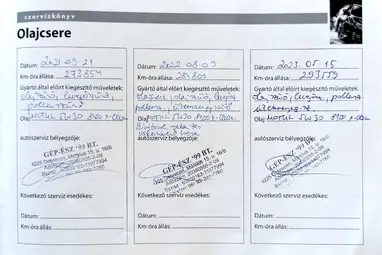 szervizkönyv
Olajcsere
Dátum: 2021-09-21
Km-óra állása: 273854
Gyártó által előírt kiegészítő műveletek:
olajszűrő, levegőszűrő,
pollenszűrő
Olaj: MOTUL 5W30 8100 X-Clean
autószerviz bélyegzője:
GÉP-ÉSZ '99 BT.
Következő szerviz esedékes:
Dátum:
Km-óra állás:
Dátum: 2022-08-09
Km-óra állása: 284809
Gyártó által előírt kiegészítő műveletek:
olajszűrő, levegő
pollen, üzemanyagszűrő
Olaj: MOTUL 5W30 8100 X-Clean
autószerviz bélyegzője:
GÉP-ÉSZ '99 BT.
Következő szerviz esedékes:
Dátum:
Km-óra állás:
Dátum: 2023.05.15
Km-óra állása: 293559
Gyártó által előírt kiegészítő műveletek:
olajszűrő, levegő, pollen
Olaj: MOTUL 5W30 8100 X-Clean
autószerviz bélyegzője:
GÉP-ÉSZ '99 BT.
Következő szerviz esedékes:
Dátum:
Km-óra állás: